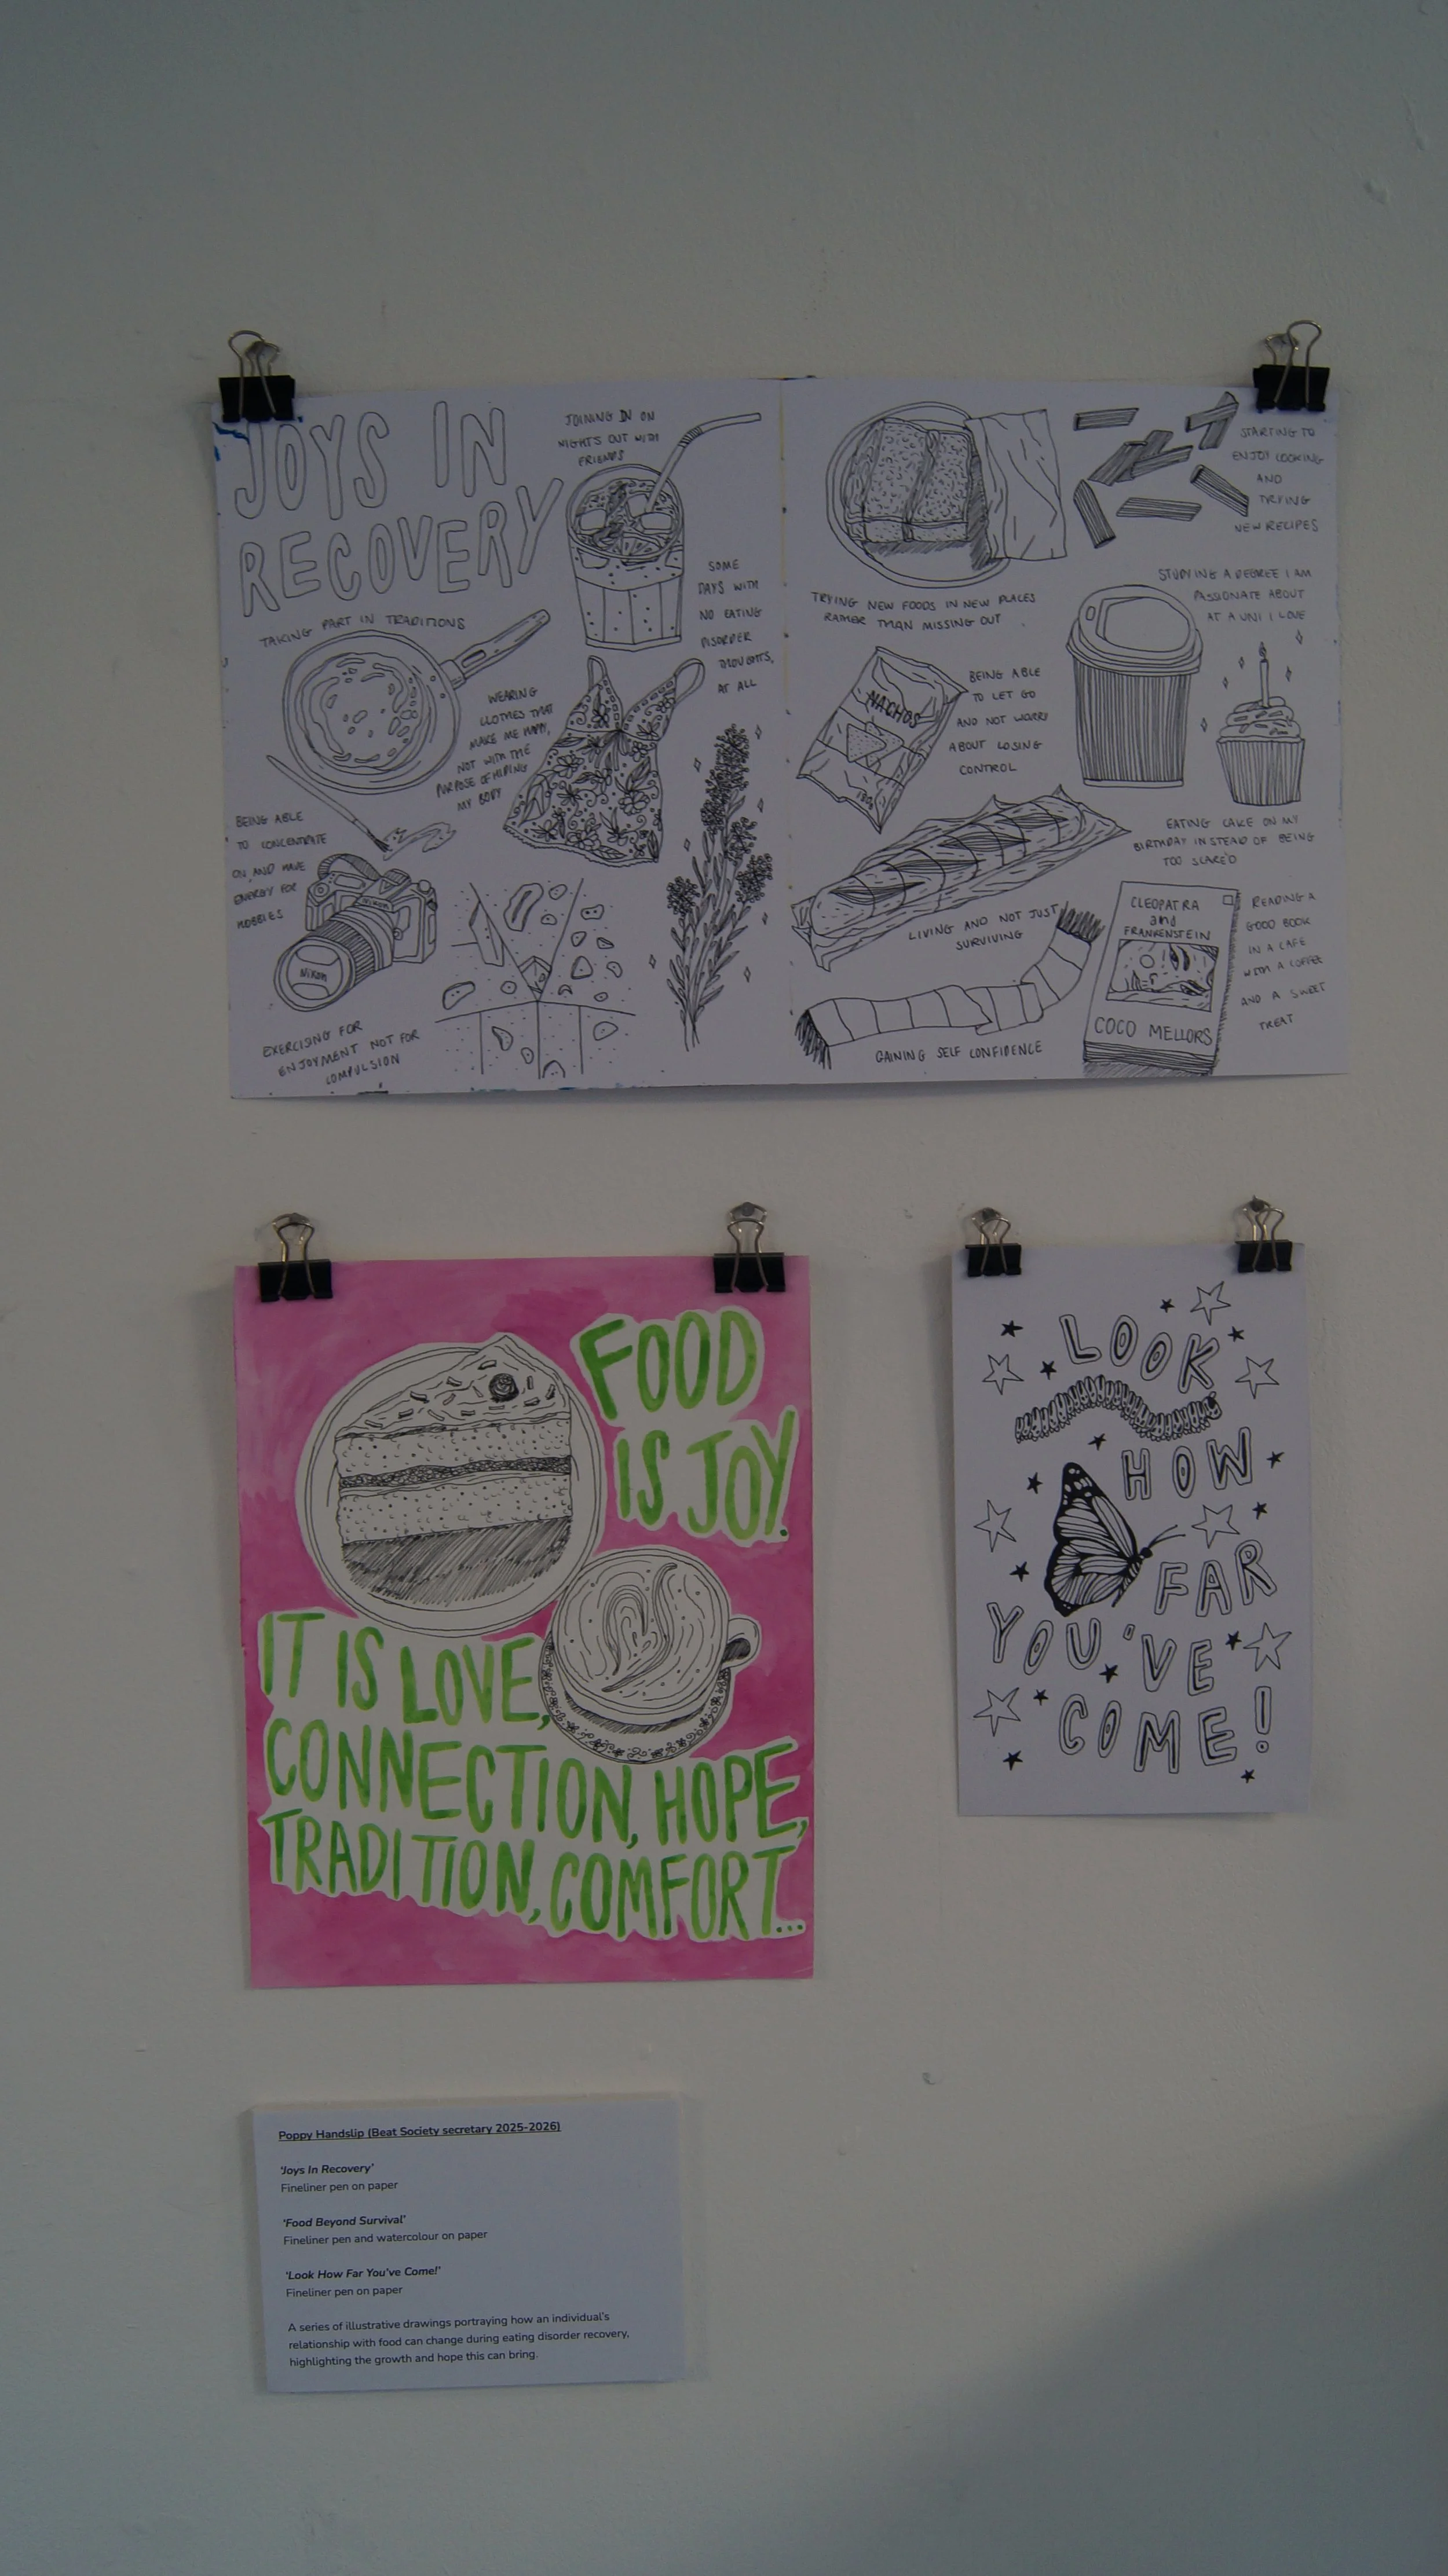 JOYS IN
RECOVERY
JOINING IN ON
NIGHTS OUT WITH
FRIENDS
TAKING PART IN TRADITIONS
SOME
DAYS WITH
NO EATING
DISORDER
THOUGHTS,
AT ALL
WEARING
CLOTHES THAT
MAKE ME HAPPY,
NOT WITH THE
PURPOSE OF HIDING
MY BODY
BEING ABLE
TO CONCENTRATE
ON AND HAVE
ENERGY FOR
HOBBIES
Nikon
Nikon
EXERCISING FOR
ENJOYMENT NOT FOR
COMPULSION
STARTING TO
ENJOY COOKING
AND
TRYING
NEW RECIPES
TRYING NEW FOODS IN NEW PLACES
RATHER THAN MISSING OUT
STUDYING A DEGREE I AM
PASSIONATE ABOUT
AT A UNI I LOVE
NACHOS
BEING ABLE
TO LET GO
AND NOT WORRY
ABOUT LOSING
CONTROL
EATING CAKE ON MY
BIRTHDAY INSTEAD OF BEING
TOO SCARED
LIVING AND NOT JUST
SURVIVING
CLEOPATRA
and
FRANKENSTEIN
COCO MELLORS
READING A
GOOD BOOK
IN A CAFE
WITH A COFFEE
AND A SWEET
TREAT
GAINING SELF CONFIDENCE
FOOD
IS JOY.
IT IS LOVE,
CONNECTION, HOPE,
TRADITION, COMFORT...
LOOK
HOW
FAR
YOU'VE
COME!
Poppy Handslip (Beat Society secretary 2025-2026)
'Joys In Recovery'
Fineliner pen on paper
'Food Beyond Survival'
Fineliner pen and watercolour on paper
'Look How Far You've Come!'
Fineliner pen on paper
A series of illustrative drawings portraying how an individual's
relationship with food can change during eating disorder recovery,
highlighting the growth and hope this can bring.